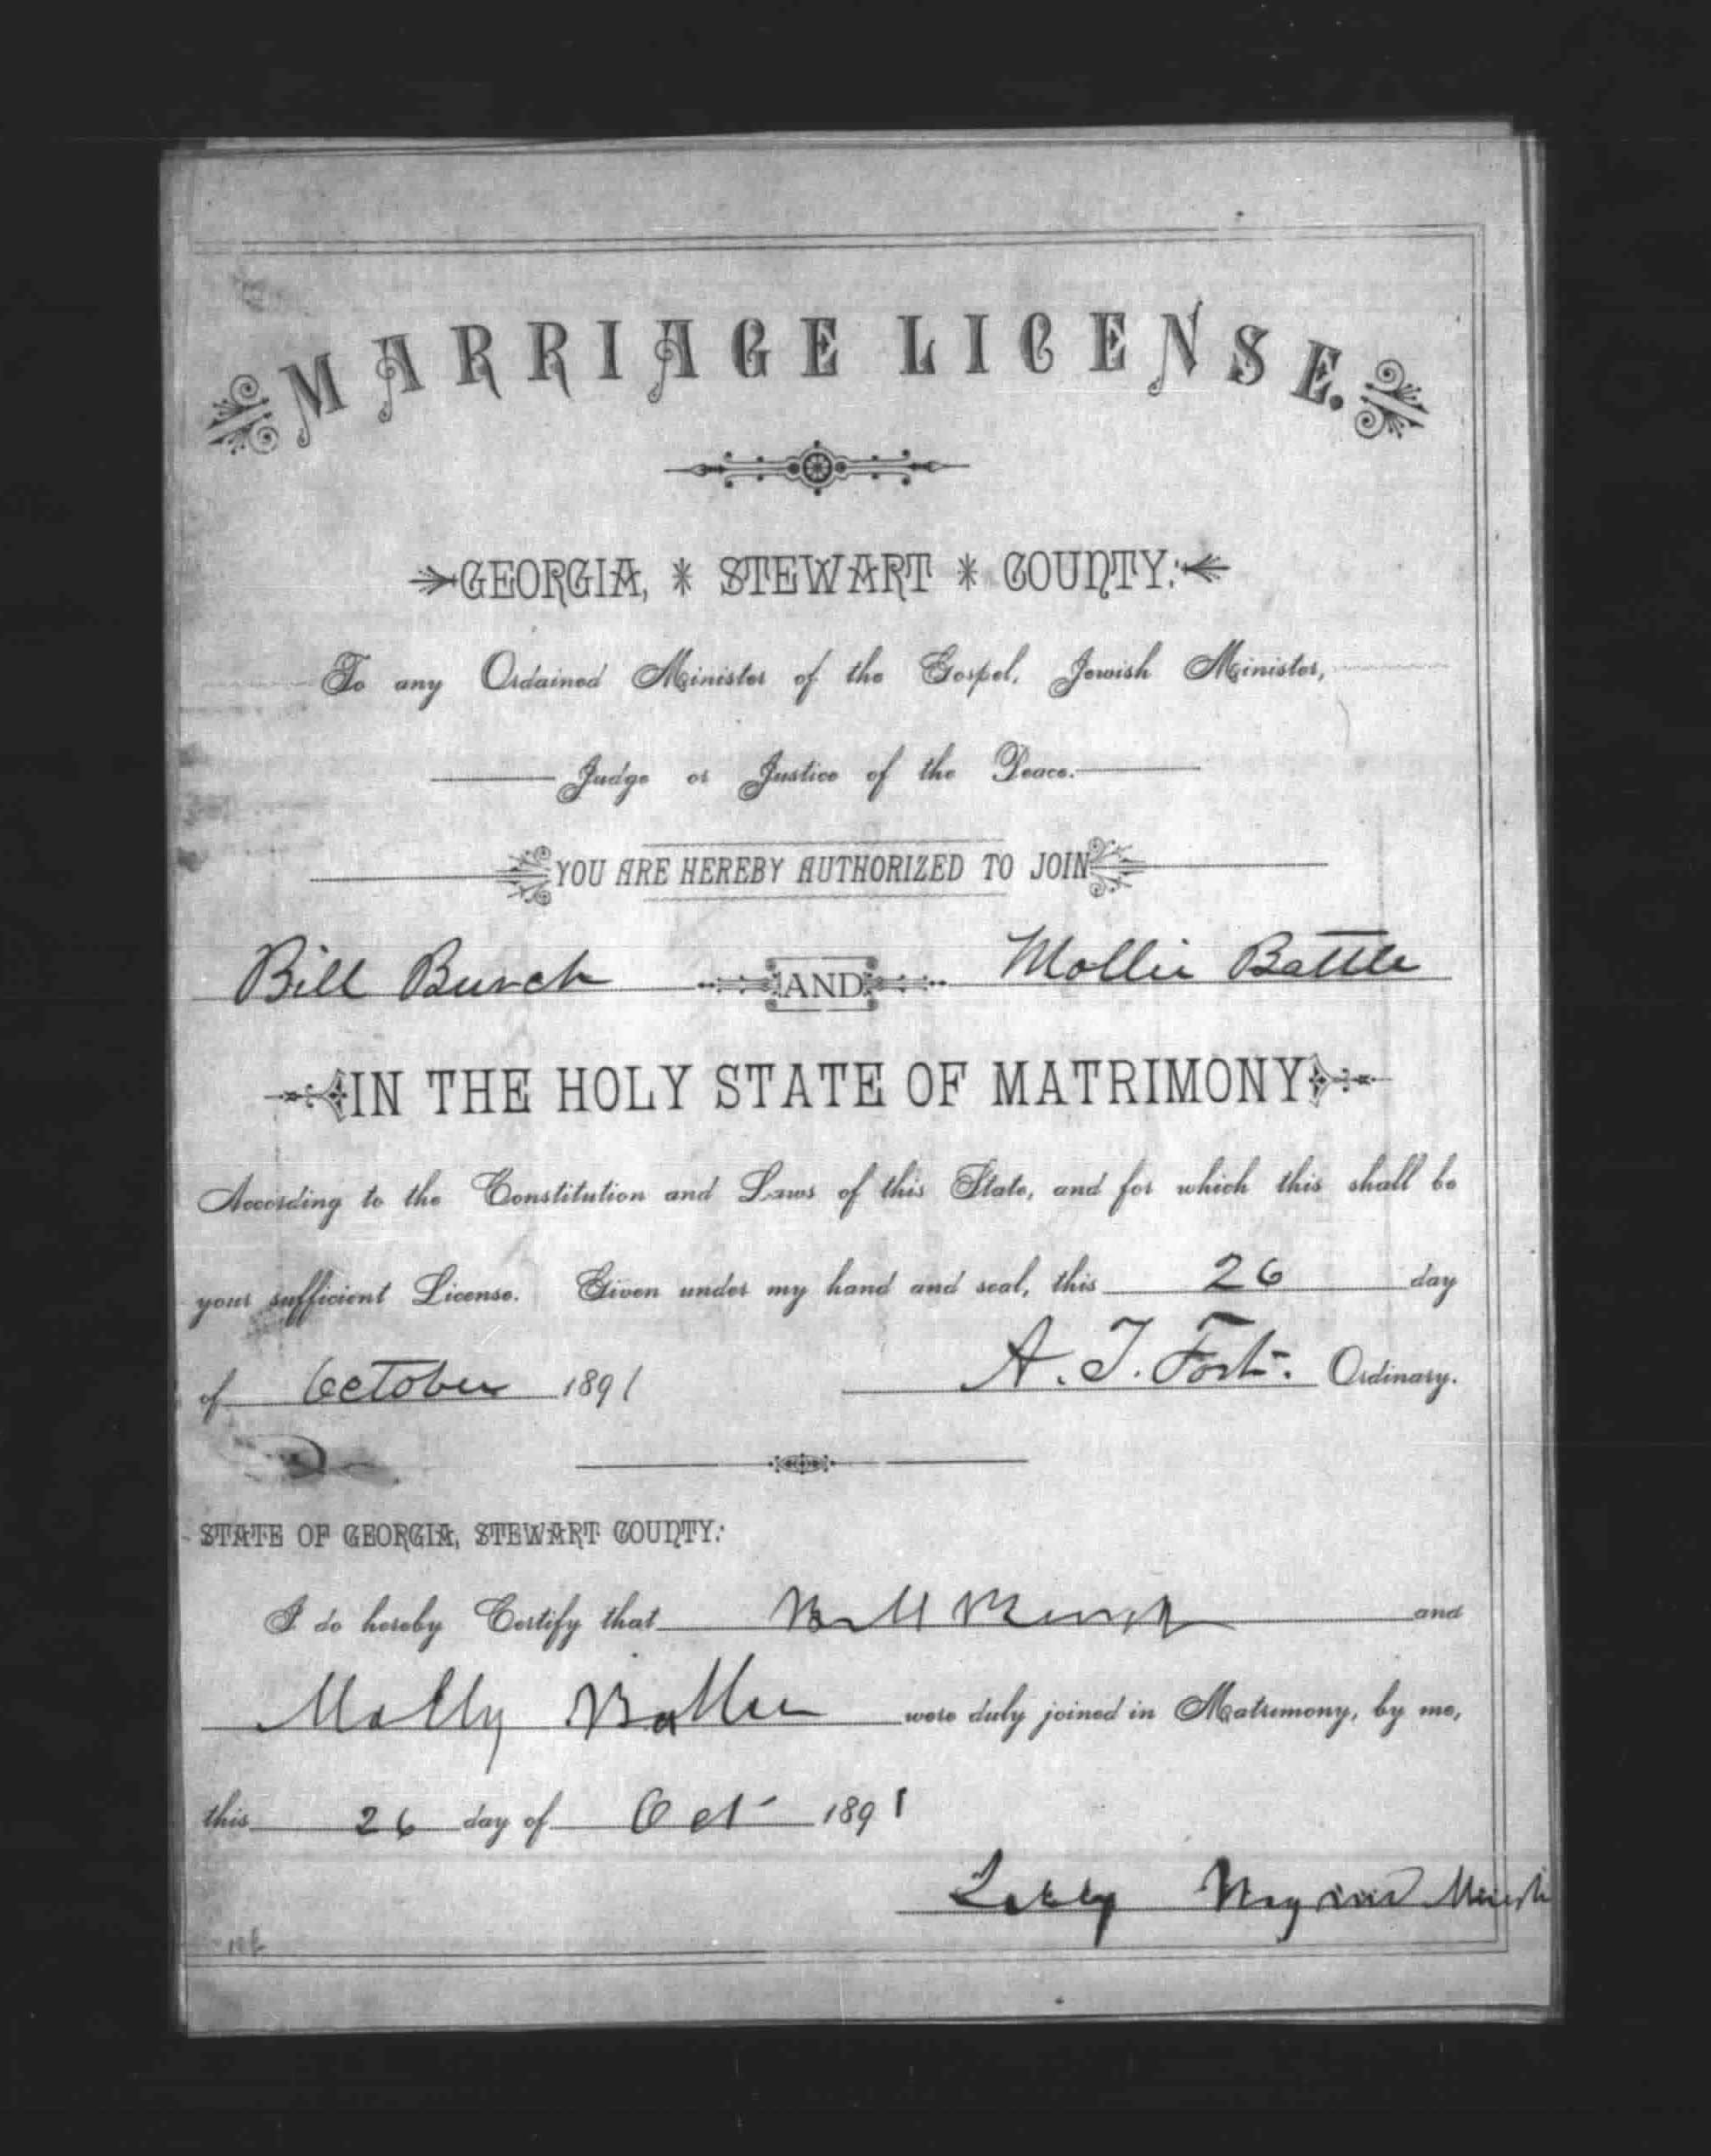 MARRIAGE LICENSE.
GEORGIA, * STEWART * COUNTY:
To any Ordained Minister of the Gospel, Jewish Minister,
Judge or Justice of the Peace.
YOU ARE HEREBY AUTHORIZED TO JOIN
Bill Burch AND Mollie Battle
IN THE HOLY STATE OF MATRIMONY
According to the Constitution and Laws of this State, and for which this shall be
your sufficient License. Given under my hand and seal, this 26 day
of October 1891 A. T. Fort. Ordinary.
STATE OF GEORGIA, STEWART COUNTY:
I do hereby Certify that Bill Burch and
Molly Battle were duly joined in Matrimony, by me,
this 26 day of Oct 1891